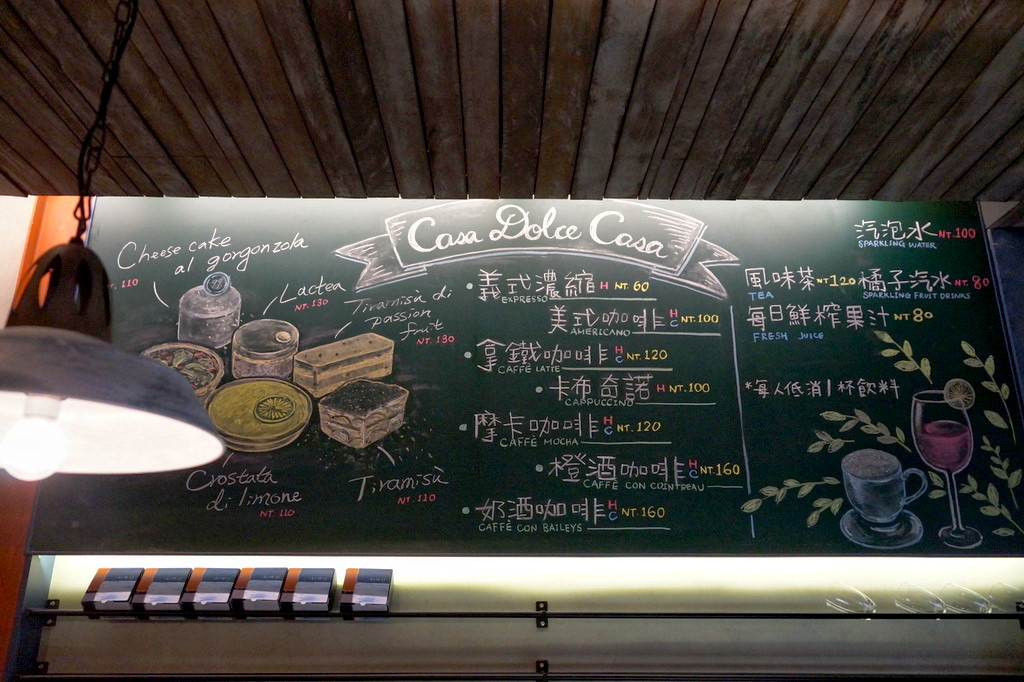 Casa Dolce Casa
Cheese cake
al gorgonzola
110
Lactea
NT. 130
Tiramisù di
passion
fruit
NT. 130
Crostata
di limone
NT. 110
Tiramisù
NT. 110
義式濃縮 H NT. 60
EXPRESSO
美式咖啡 H C NT. 100
AMERICANO
拿鐵咖啡 H C NT. 120
CAFFÈ LATTE
卡布奇諾 H NT. 100
CAPPUCCINO
摩卡咖啡 H C NT. 120
CAFFÈ MOCHA
橙酒咖啡 H C NT. 160
CAFFÈ CON COINTREAU
奶酒咖啡 H C NT. 160
CAFFÈ CON BAILEYS
汽泡水 NT. 100
SPARKLING WATER
風味茶 NT 120 橘子汽水 NT. 80
TEA SPARKLING FRUIT DRINKS
每日鮮榨果汁 NT 80
FRESH JUICE
*每人低消1杯飲料